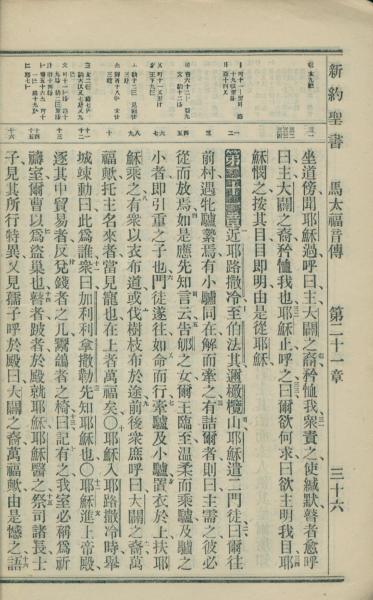 新約聖書 馬太福音傳 第二十一章 三十六
坐道傍聞耶穌過呼曰主大闢之裔矜恤我衆責之使緘默瞽者愈呼
曰主大闢之裔矜恤我也耶穌止呼之曰爾欲何求曰欲主明我目耶
穌憫之按其目目即明由是從耶穌
第二十一章近耶路撒冷至伯法其邇橄欖山耶穌遣二門徒曰爾往
前村遇牝驢縶焉有小驢同在解而牽之有詰爾者則曰主需之彼必
從而放焉如是應先知言云告郇之女爾王臨至温柔而乘驢及驢之
小者即引重之子也門徒遂往如命而行牽驢及小驢置衣於上扶耶
穌乘之有衆以衣布道或伐樹枝布於途前後衆庶呼曰大闢之裔萬
福歟托主名來者當見寵也在上者萬福矣○耶穌入耶路撒冷時舉
城竦動曰此爲誰衆曰加利利拿撒勒先知耶穌也○耶穌進上帝殿
逐其中貿易者反兌錢者之几鬻鴿者之椅曰記有之我室必稱爲祈
禱室爾曹以爲盜巢也瞽者跛者於殿就耶穌耶穌醫之祭司諸長士
子見其所行特異又見孺子呼於殿曰大闢之裔萬福歟由是憾之語